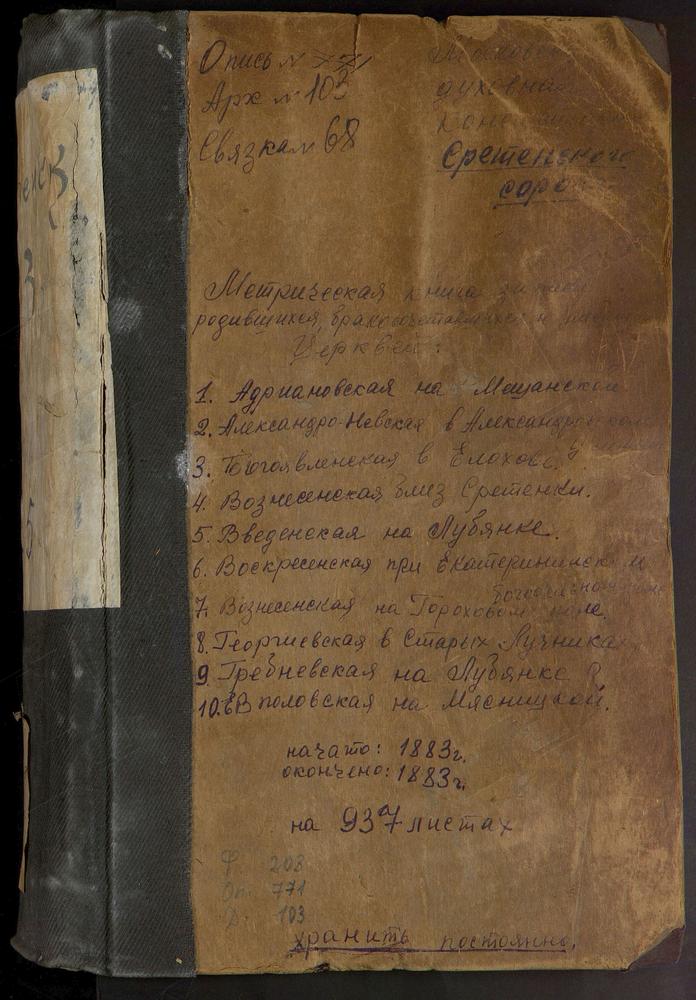 Опись № 771
Арх № 103
Связка № 68
Московск
духовная
Сретенского
соро
Метрическая книга записи
родившихся, бракосочетавшихся и
Церквей:
1. Адриановская на Мещанской
2. Александро-Невская в Александров
3. Богоявленская в Елохове.
4. Вознесенская близ Сретенки.
5. Введенская на Лубянке.
6. Воскресенская при Екатерининск
7. Вознесенская на Гороховом поле.
8. Георгиевская в Старых Лучника
9. Гребневская на Лубянке
10. Евполовская на Мясницкой.
начато: 1883г.
окончено: 1883г.
на 937 листах
Ф. 203
Оп. 771
Д. 103
хранить постоянно.